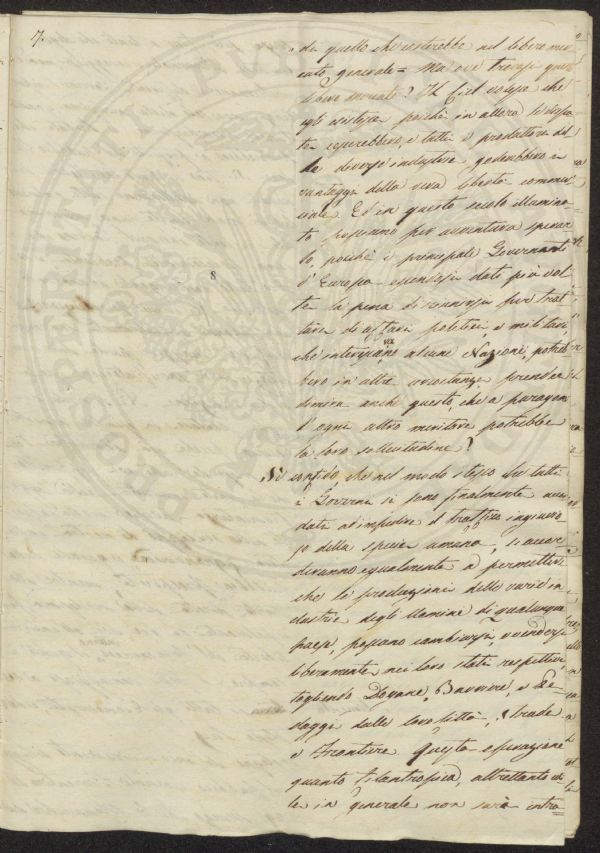 7.
da quello che costerebbe nel libero mer
cato generale = Ma ove trovasi questo
libero mercato? Il Ciel volesse che
egli esistesse poichè in allora le dispu
te cesserebbero, e tutti i produttori del
le diverse industrie godrebbero i
vantaggi della vera libertà commer
ciale. Ed in questo secolo illumina
to possiamo per avventura sperar
lo, poichè i principali Governanti
d'Europa essendosi dati più vol
te la pena di riunirsi per trat
tare di affari politici, e militari,
che interessano alcune Nazioni, potreb
bero in altre circostanze prender
di mira anche questo, che a paragone
d'ogni altro meritare potrebbe
la loro sollecitudine?
Si confido, che nel modo stesso che tutti
i Governi si sono finalmente accor
dati ad impedire il traffico ingiurio
so della specie umana, si accor
deranno egualmente a permettere
che le produzioni delle varie in
dustrie degli Uomini di qualunque
paese, possano cambiarsi, e vendersi
liberamente nei loro stati respettivi,
togliendo Dogane, Barriere, e Pe
daggi dalle loro Città, Strade
e Frontiere. Questa operazione
quanto filantropica, altrettanto uti
le in generale non sarà intra
8
PROSPERITATI PUBLICAE